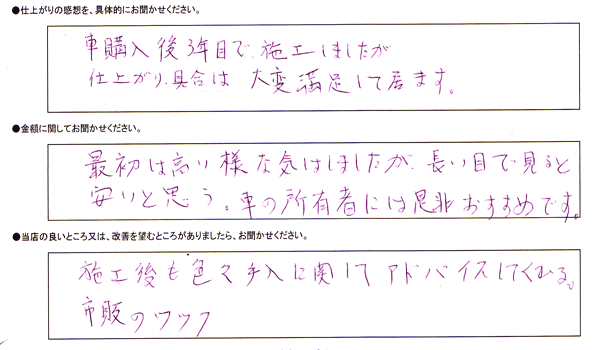 ●仕上がりの感想を、具体的にお聞かせください。
車購入後3年目で、施工しましたが
仕上がり具合は 大変満足して居ます。
●金額に関してお聞かせください。
最初は高い様な気はしましたが、長い目で見ると
安いと思う。車の所有者には是非おすすめです。
●当店の良いところ又は、改善を望むところがありましたら、お聞かせください。
施工後も色々手入に関して アドバイスしてくれる。
市販のワックス